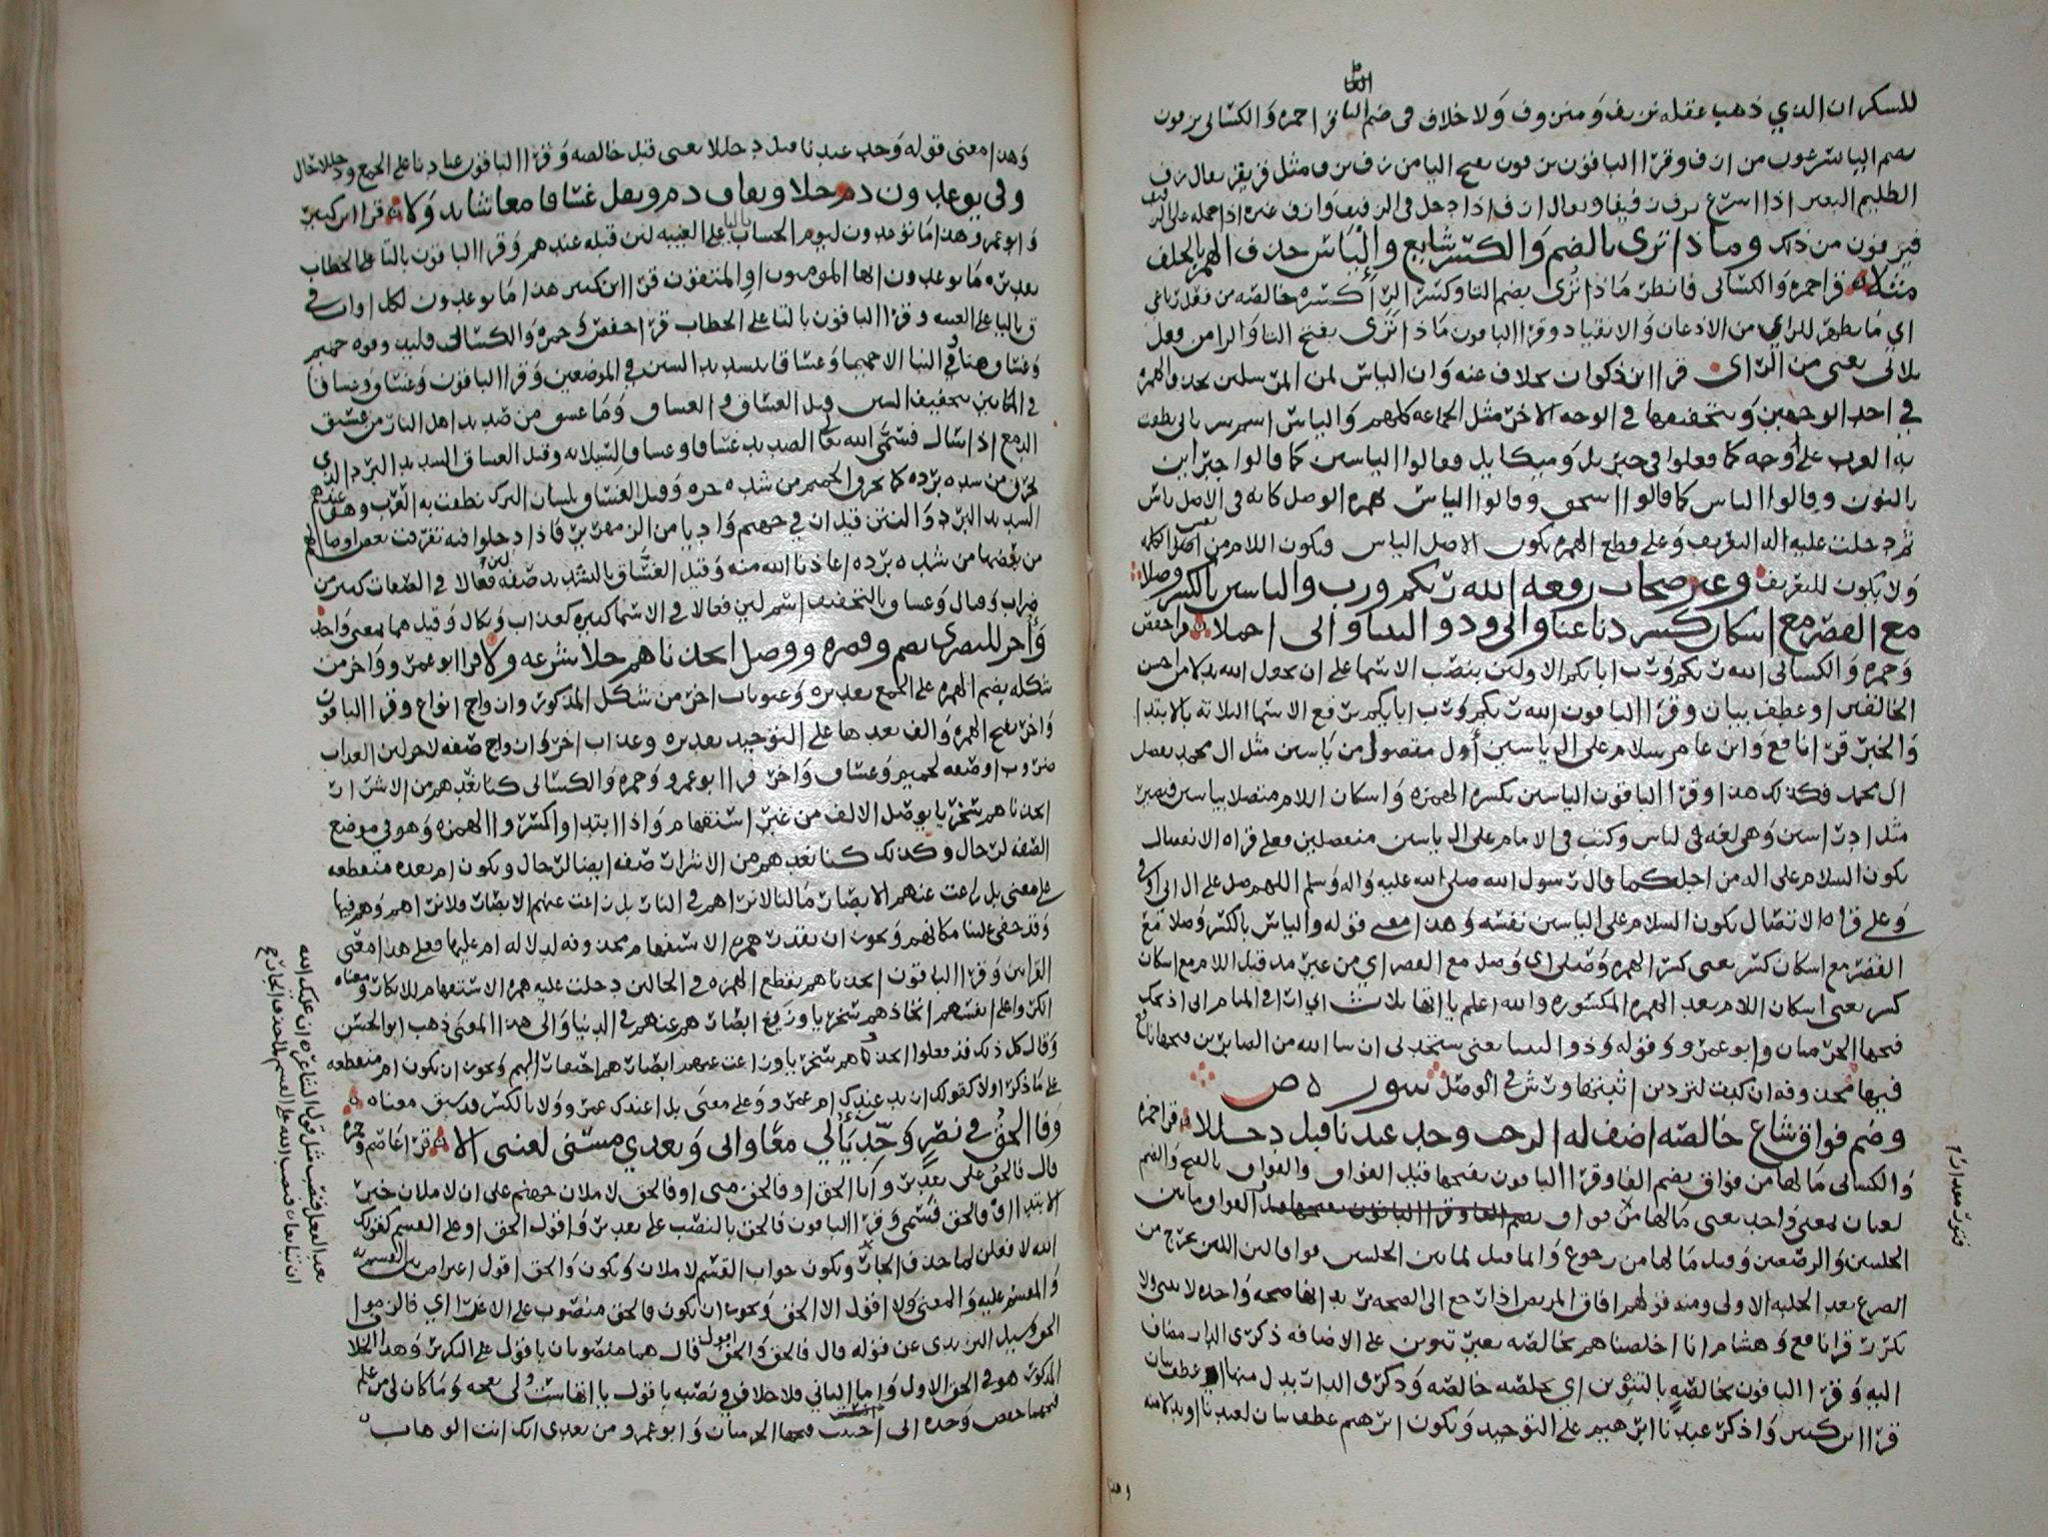 التا
للسكران الذي ذهب عقله نزيف ومنزوف ولا خلاف في ضم التا قرا حمزه والكسائي يزفون
بضم اليا يسرعون من ازف وقرا الباقون يزفون بفتح اليا من زف يزف مثل فر يفر يقال زف
الظليم البعير اذا اسرع يزف زفيفا ويقال ازف اذا دخل في الزفيف وازف غيره اذا حمله على الزفيف
فيزفون من ذلك وماذا ترى بالضم والكسر شايع والياس حذف الهمز بالخلف
مثلا قرا حمزه والكسائي فانظر ماذا تُرى بضم التا وكسر الرا كسره خالصه من فعل رباعي
اي ما يظهر للراي من الاذعان والانقياد وقرا الباقون ماذا تَرَى بفتح التا والرا من فعل
ثلاثي يعني من الراي قرا ابن ذكوان بخلاف عنه وان الياس لمن المرسلين بحذف الهمزه
في احد الوجهين وبتحقيقها في الوجه الاخر مثل الجماعه كلهم والياس اسم سرياني نطقت
به العرب على اوجه كما فعلوا في جبريل وميكايل فقالوا الياسين كما قالوا جبراين
بالنون وقالوا الياس كما قالوا اسحق وقالوا الياس بهمزه الوصل كانه في الاصل ياس
ثم دخلت عليه اله التعريف وعلى قطع الهمزه يكون الاصل الياس ويكون اللام من اصل الكلمه
ولا يكون للتعريف وغير صحاب رفعه الله ربكم ورب والياسين بالكسر وصلا
مع القصر مع اسكان كسر دنا غنا واني وذو الثنيا واني اجملا قرا حفص
وحمزه والكسائي الله ربكم ورب ابايكم الاولين بنصب الاسما على ان يجعل الله بدلا من احسن
الخالقين او عطف بيان وقرا الباقون الله ربكم ورب ابايكم برفع الاسما الثلاثه بالابتدا
والخبر قرا نافع وابن عامر سلام على ال ياسين ال مفصول من ياسين مثل ال محمد بفصل
ال محمد فكذلك هذا وقرا الباقون الياسين بكسره الهمزه واسكان اللام متصلا بياسين فيصير
مثل ادراسين وهي لغه في الياس وكتب في الامام على ال ياسين منفصلين فعلى قراه الانفصال
يكون السلام على اله من اجله كما قال رسول الله صلى الله عليه واله وسلم اللهم صل على ال ابي اوفى
وعلى قراه الاتصال يكون السلام على الياسين نفسه وهذا معنى قوله والياس بالكسر وصلا مع
القصر مع اسكان كسر يعني كسر الهمزه وصلا اي وصل مع القصر اي من غير مد قبل اللام مع اسكان
كسر يعني اسكان اللام بعد الهمزه المكسوره والله اعلم ياتها ثلاث اني ارى في المنام اني اذبحك
فتحها الحرميان وابو عمرو وقوله وذو الثنيا يعني ستجدني ان شا الله من الصابرين فتحها نافع
فيها محذوفه ان كدت لتردين اثبتها ورش في الوصل سوره ص
وضم فواق شاع خالصه اضف له الرحب وحد عبدنا قبل دخللا قرا حمزه
والكسائي ما لها من فواق بضم الفا وقرا الباقون بفتحها قيل الفواق والفواق بالفتح والضم
لغتان لمعنى واحد يعني ما لها من فواق بضم الفا وقرا الباقون بفتحها قيل الفواق ما بين
الحلبتين والرضعتين وقيل ما لها من رجوع وانما قيل لما بين الحلبتين فواق لان اللبن يخرج من
الضرع بعد الحلبه الاولى ومنه قولهم افاق المريض اذا رجع الى الصحه يريد انها صيحه واحده لا تثنى ولا
تكرر قرا نافع وهشام انا اخلصناهم بخالصه بغير تنوين على الاضافه ذكرى الدار مضاف
اليه وقرا الباقون بخالصهٍ بالتنوين اي بخلصه خالصه وذكرى الدار بدل منها او عطف بيان
قرا ابن كثير واذكر عبدنا ابرهيم على التوحيد ويكون ابرهيم عطف بيان لعبدنا او بدلا منه
وهذا
وهذا معنى قوله وحد عبدنا قبل دخللا يعني قبل خالصه وقرا الباقون عبادنا على الجمع ودخللا حال
وفي يوعدون دم حلا وبقاف دم وثقل غساقا معا شايد وكلا قرا ابن كثير
وابو عمرو هذا ما توعدون ليوم الحساب باليا على الغيبه لان قبله عندهم وقرا الباقون بالتا على الخطاب
تقديره ما توعدون ايها المومنون او المتقون قرا ابن كثير هذا ما يوعدون لكل اواب في
ق باليا على الغيبه وقرا الباقون بالتا على الخطاب قرا حفص وحمزه والكسائي فليذوقوه حميم
وغساق هنا وفي النبا الا حميما وغساقا بتشديد السين في الموضعين وقرا الباقون وغساق وغساقا
في المكانين بتخفيف السين وقيل الغساق والغساق وما غسق من صديد اهل النار من غسق
الدمع اذا سال فسمى الله تعالى الصديد غساقا وغساقا لسيلانه وقيل الغساق الشديد البرد الذي
يحرق من شده برده كما يحرق الحميم من شده حره وقيل الغساق بلسان الترك نطقت به العرب وهو عندهم
الشديد البرد والنتن قيل ان في جهنم واديا من الزمهرير فاذا دخلوا فيه تفرقت بعض اوصالهم
من بعضها من شده برده اعاذنا الله منه وقيل الغساق بالتشديد صفه لان فعالا في الصفات كثير من
ضراب وقتال وغساق بالتخفيف اسم لان فعالا في الاسما كثيره كعذاب ونكال وقيل هما بمعنى واحد
واخر للبصري بضم وقصره ووصل اتخذناهم حلا شرعه ولا قرا ابو عمرو واخر من
شكله بضم الهمزه على الجمع تقديره وعقوبات اخر من شكل المذكور وازواج انواع وقرا الباقون
واخر بفتح الهمزه والف بعدها على التوحيد تقديره وعذاب اخر وازواج صفه لاخر لان العذاب
ضروب او صفه لحميم وغساق واخر قرا ابو عمرو وحمزه والكسائي كنا نعدهم من الاشرار
اتخذناهم سخريا بوصل الالف من غير استفهام واذا ابتداوا كسروا الهمزه وهو في موضع
الصفه لرجال وكذلك كنا نعدهم من الاشرار صفه ايضا لرجال ويكون ام بعده منقطعه
على معنى بل زاغت عنهم الابصار ما لنا لا نراهم في النار بل زاغت عنهم الابصار فلا نراهم وهم فيها
وقد خفي علينا مكانهم ويجوز ان يقدر همزه الاستفهام محذوفه لدلاله ام عليها فعلى هذا معنى
القراتين وقرا الباقون اتخذناهم بقطع الهمزه في الحالين دخلت عليه همزه الاستفهام للانكار ومعناه
انكروا على انفسهم اتخاذهم سخريا وزيغ ابصارهم عنهم في الدنيا والى هذا المعنى ذهب ابو الحسن
وقال كل ذلك قد فعلوا اتخذوهم سخريا وزاغت عنهم ابصارهم احتقارا لهم ويجوز ان يكون ام منقطعه
على ما ذكر اولا كقولك ازيد عندك ام عمرو وعلى معنى بل اعندك عمرو ولا بالكسر قد سبق معناه
وفالحق في نصر وخذ يائي معا واني وبعدي مسني لعنتي الى قرا عاصم وحمزه
قال فالحق على تقدير وانا الحق او فالحق مني او فالحق لاملان جهنم على ان لاملان خبر
الابتدا او فالحق قسمي وقرا الباقون فالحق بالنصب على تقدير واقول الحق او على القسم كقولك
الله لافعلن لما حذف الجار ويكون جواب القسم لاملان ويكون والحق اقول اعتراض بين القسم به
والمقسم عليه والمعنى ولا اقول الا الحق ويجوز ان يكون فالحق منصوب على الاغرا اي فالزموا
الحق وسيل اليزيدي عن قوله قال فالحق والحق اقول قال هما منصوبان باقول على التكرير وهذا الخلاف
المذكور هو في الحق الاول واما الثاني فلا خلاف في نصبه باقول ياتها ست ولي نعجه وما كان لي من علم
فتحهما حفص وحده اني احببت فتحها الحرميان وابو عمرو من بعدي انك انت الوهاب